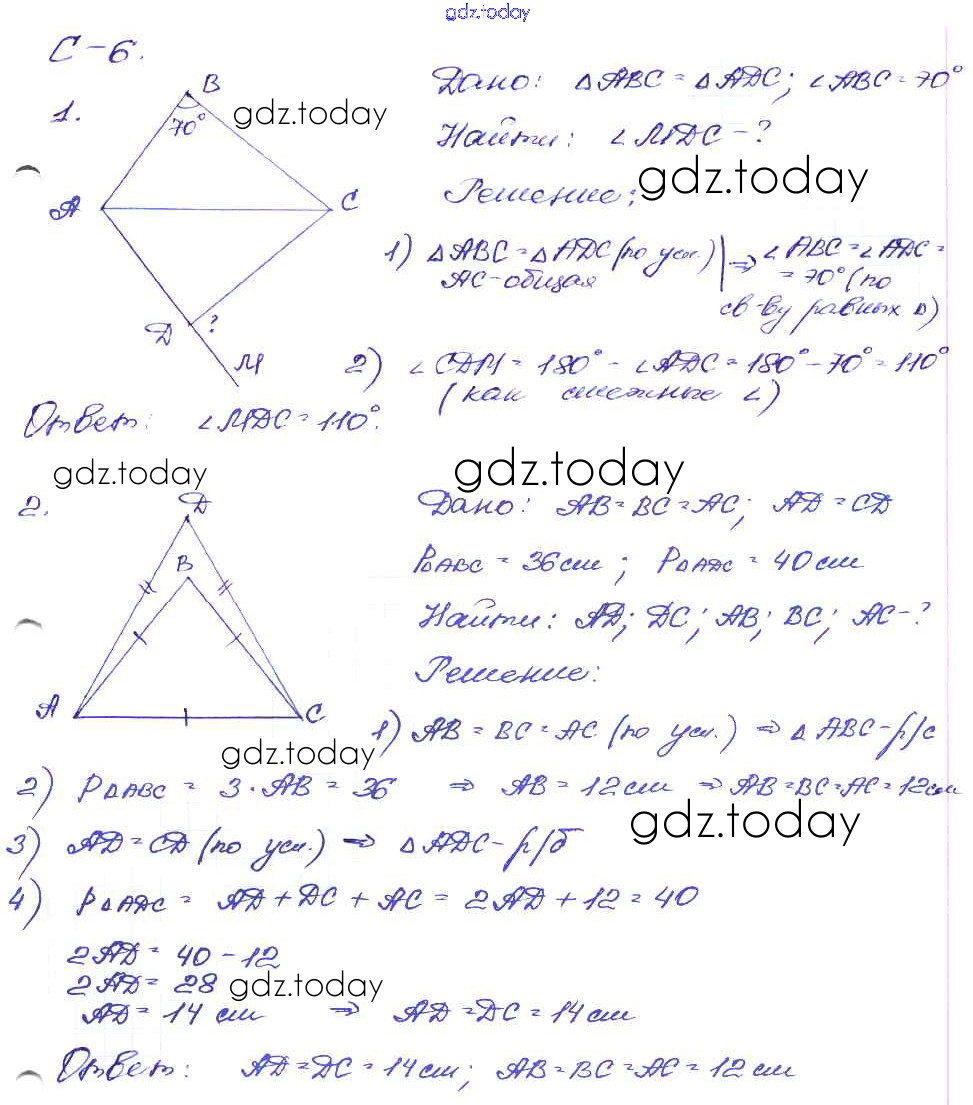 gdz.today
С-6.
1.
B
70°
A
C
D
?
M
gdz.today
Дано: △ABC = △ADC; ∠ABC = 70°
Найти: ∠MDC - ?
Решение:
gdz.today
1) △ABC = △ADC (по усл.) | ⇒ ∠ABC = ∠ADC =
AC - общая = 70° (по
св-ву равных △)
2) ∠CDM = 180° - ∠ADC = 180° - 70° = 110°
(как смежные ∠)
Ответ: ∠MDC = 110°.
gdz.today
gdz.today
2.
D
B
A
C
Дано: AB = BC = AC; AD = CD
P△ABC = 36см; P△ADC = 40см
Найти: AD; DC; AB; BC; AC - ?
Решение:
1) AB = BC = AC (по усл.) ⇒ △ABC - р/с
gdz.today
2) P△ABC = 3·AB = 36 ⇒ AB = 12см ⇒ AB=BC=AC=12см
gdz.today
3) AD = CD (по усл.) ⇒ △ADC - р/б
4) P△ADC = AD + DC + AC = 2AD + 12 = 40
2AD = 40 - 12
2AD = 28
gdz.today
AD = 14 см ⇒ AD = DC = 14см
Ответ: AD = DC = 14см; AB = BC = AC = 12см